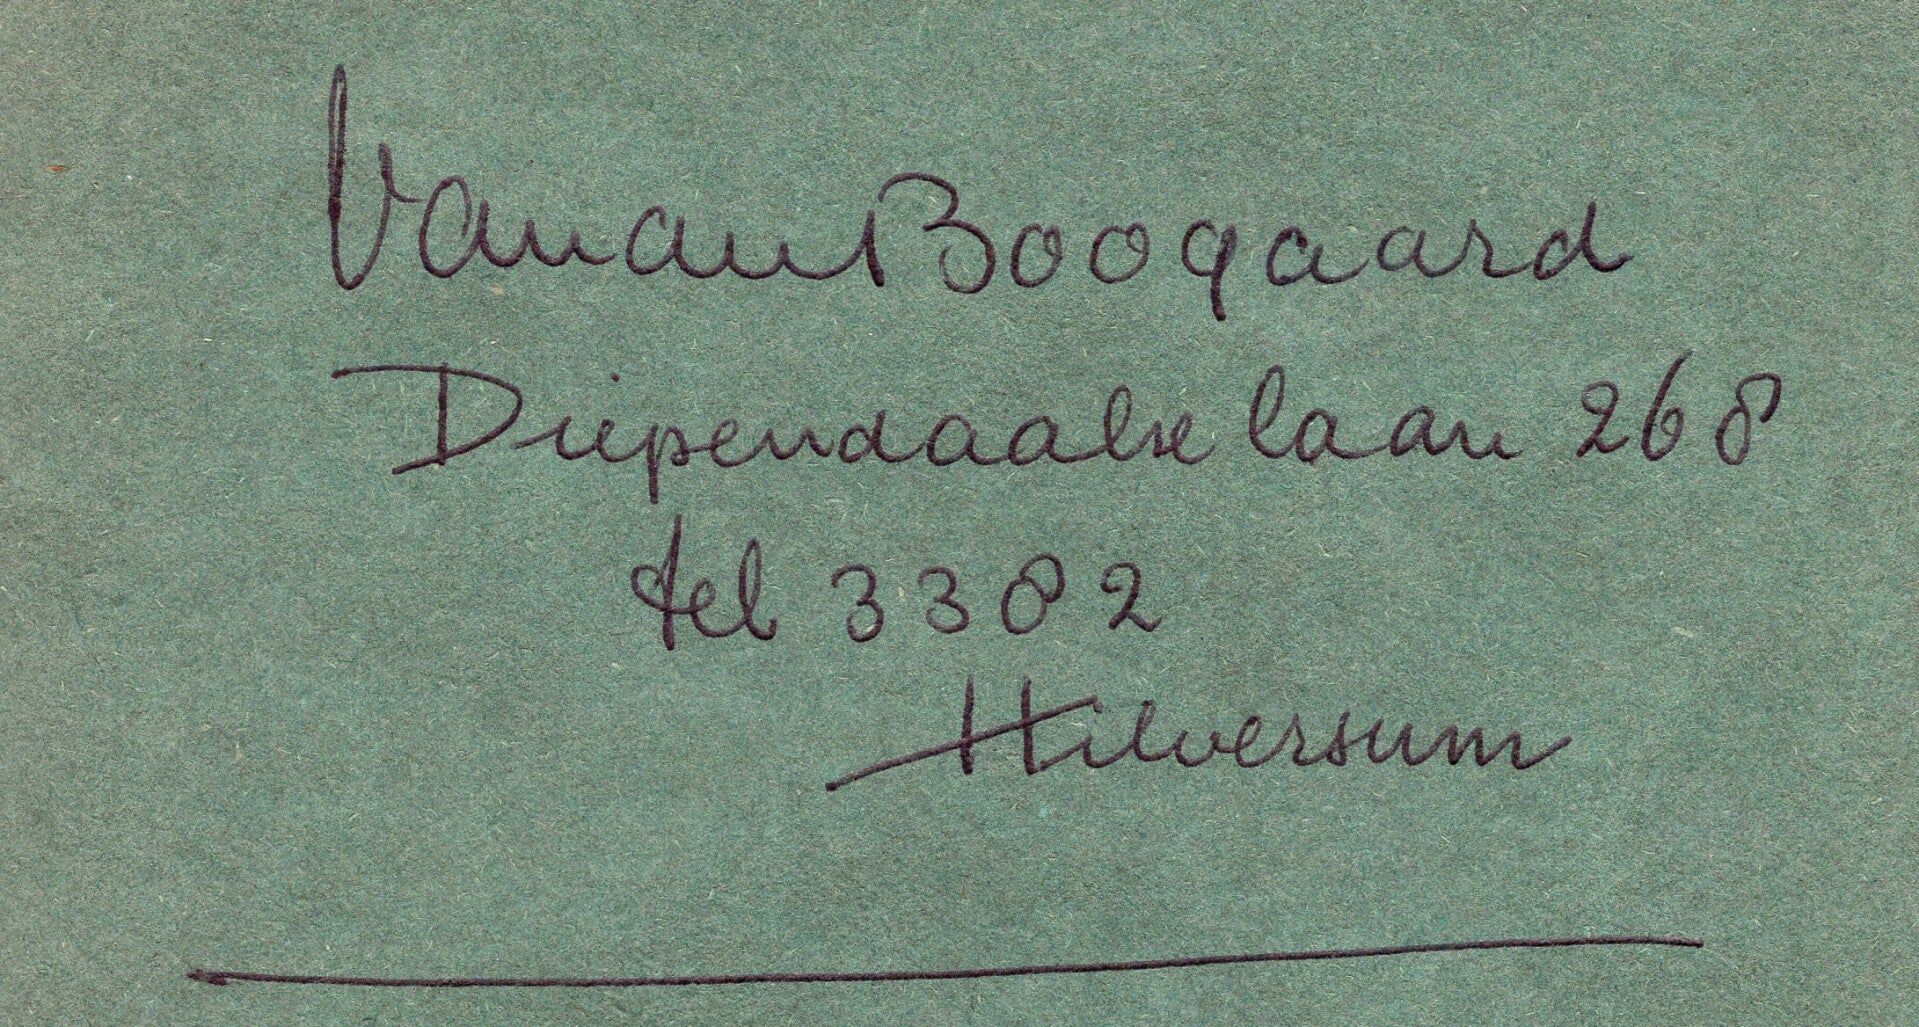 Van an Boogaard
Diependaalse laan 268
tel 3382
Hilversum